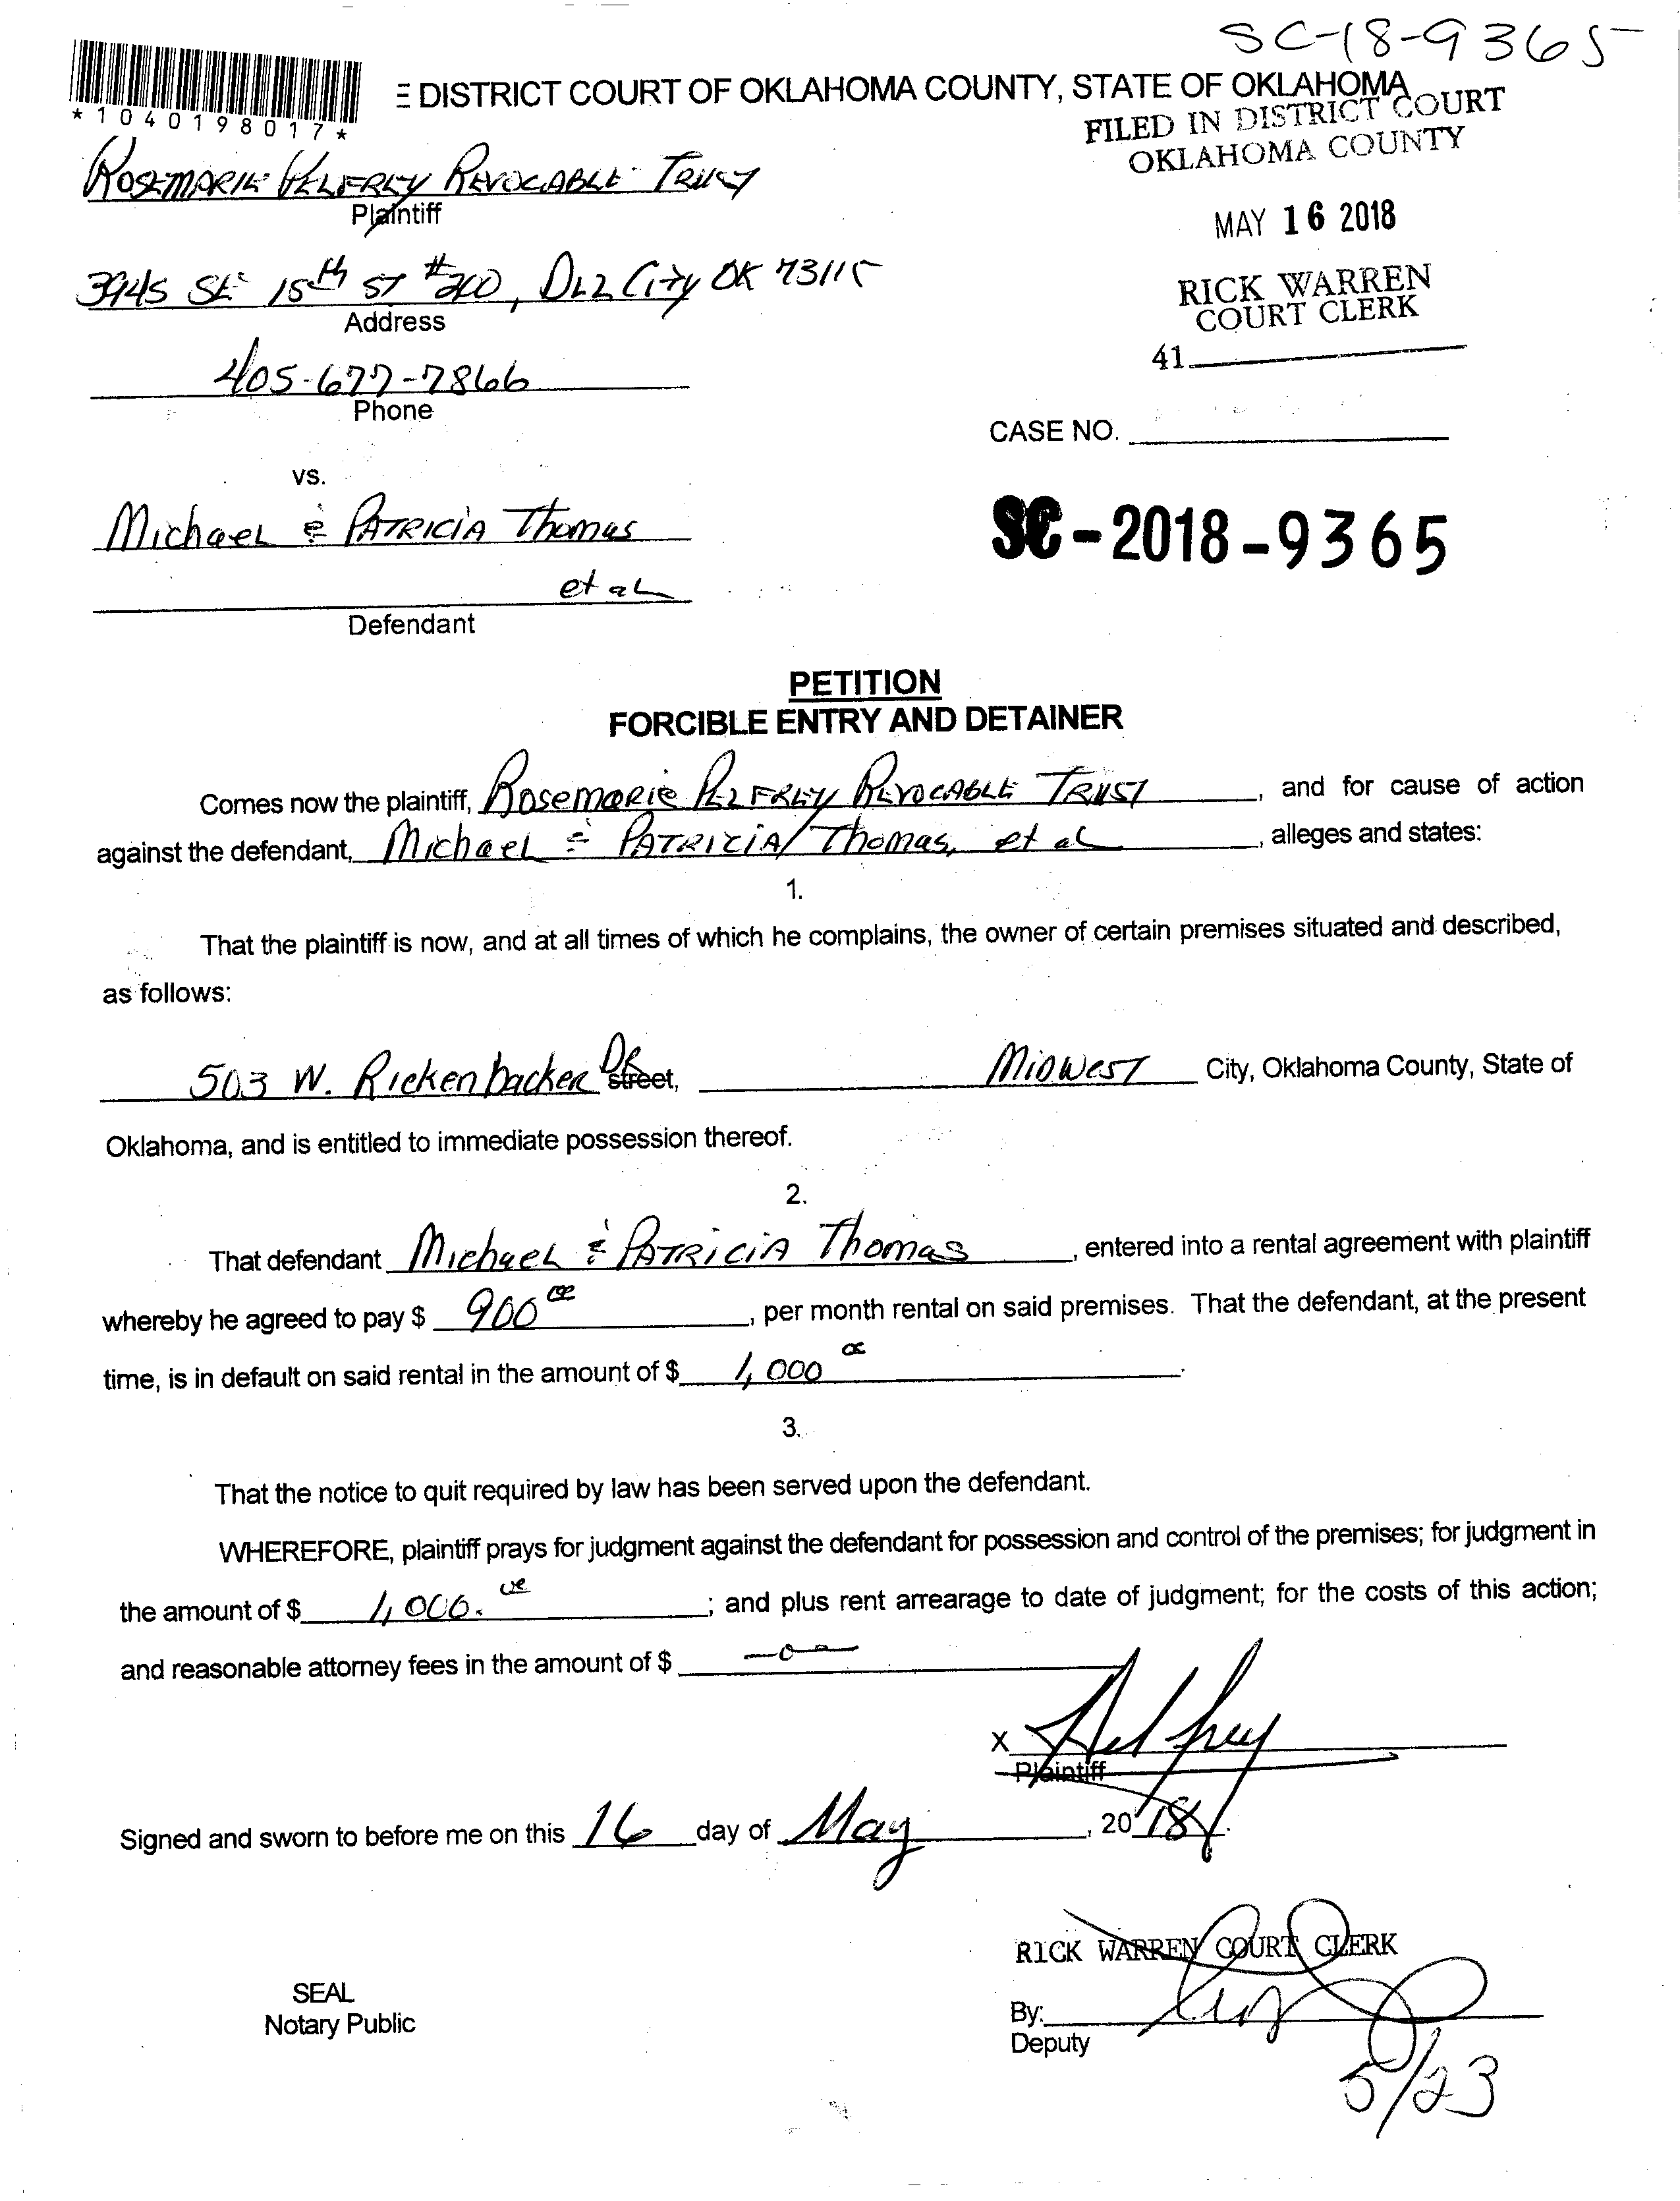 SC-18-9365
* 1 0 4 0 1 9 8 0 1 7 *
E DISTRICT COURT OF OKLAHOMA COUNTY, STATE OF OKLAHOMA
FILED IN DISTRICT COURT
OKLAHOMA COUNTY
Rosemarie Pelfrey Revocable Trust
Plaintiff
MAY 16 2018
3945 SE 15th ST #200, Del City OK 73115
Address
RICK WARREN
COURT CLERK
405-677-7866
Phone
41
CASE NO.
vs.
Michael & Patricia Thomas
et al
Defendant
SC-2018-9365
PETITION
FORCIBLE ENTRY AND DETAINER
Comes now the plaintiff, Rosemarie Pelfrey Revocable Trust, and for cause of action
against the defendant, Michael & Patricia Thomas, et al, alleges and states:
1.
That the plaintiff is now, and at all times of which he complains, the owner of certain premises situated and described,
as follows:
503 W. Rickenbacker Dr street, Midwest City, Oklahoma County, State of
Oklahoma, and is entitled to immediate possession thereof.
2.
That defendant Michael & Patricia Thomas, entered into a rental agreement with plaintiff
whereby he agreed to pay $ 900 00, per month rental on said premises. That the defendant, at the present
time, is in default on said rental in the amount of $ 1,000 00.
3.
That the notice to quit required by law has been served upon the defendant.
WHEREFORE, plaintiff prays for judgment against the defendant for possession and control of the premises; for judgment in
the amount of $ 1,000. 00; and plus rent arrearage to date of judgment; for the costs of this action;
and reasonable attorney fees in the amount of $ -0-
X Pelfrey
Plaintiff
Signed and sworn to before me on this 16 day of May, 2018.
RICK WARREN COURT CLERK
SEAL
Notary Public
By:
Deputy
5/23